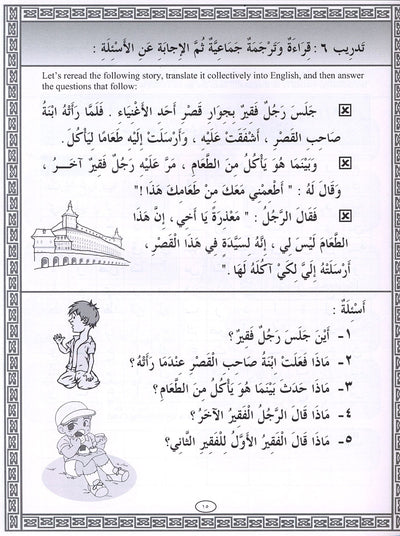 تَدريب ٦ : قِراءَةٌ وَتَرْجَمَةٌ جَماعِيَّةٌ ثُمَّ الإِجابَةِ عَنِ الأَسْئِلَةِ :
Let's reread the following story, translate it collectively into English, and then answer
the questions that follow:
جَلَسَ رَجُلٌ فَقيرٌ بِجِوارِ قَصْرِ أَحَدِ الأَغْنِياءِ . فَلَمَّا رَأَتْهُ ابْنَةُ
صاحِبِ القَصْرِ ، أَشْفَقَتْ عَلَيْهِ ، وَأَرْسَلَتْ إِلَيْهِ طَعامًا لِيَأْكُلَ.
وَبَيْنَما هُوَ يَأْكُلُ مِنَ الطَّعامِ ، مَرَّ عَلَيْهِ رَجُلٌ فَقيرٌ آخَـرُ ،
وَقالَ لَهُ : " أَطْعِمْني مَعَكَ مِنْ طَعامِكَ هَذَا !"
فَقالَ الرَّجُلُ : " مَعْذِرَةً يا أَخي ، إِنَّ هَذا
الطَّعامَ لَيْسَ لي ، إِنَّهُ لِسَيِّدَةٍ في هَذَا القَصْرِ ،
أَرْسَلَتْهُ إِلَيَّ لِكَيْ آكُلَهُ لَها ."
أَسْئِلَةٌ :
١- أَيْنَ جَلَسَ رَجُلٌ فَقيرٌ؟
٢- مَاذَا فَعَلَتْ ابْنَةُ صاحِبِ القَصْرِ عِنْدَما رَأَتْهُ؟
٣- مَاذَا حَدَثَ بَيْنَما هُوَ يَأْكُلُ مِنَ الطَّعامِ؟
٤- مَاذَا قَالَ الرَّجُلُ الفَقيرُ الآخَرُ؟
٥- مَاذَا قَالَ الفَقيرُ الأَوَّلُ لِلْفَقيرِ الثَّاني؟
١٥